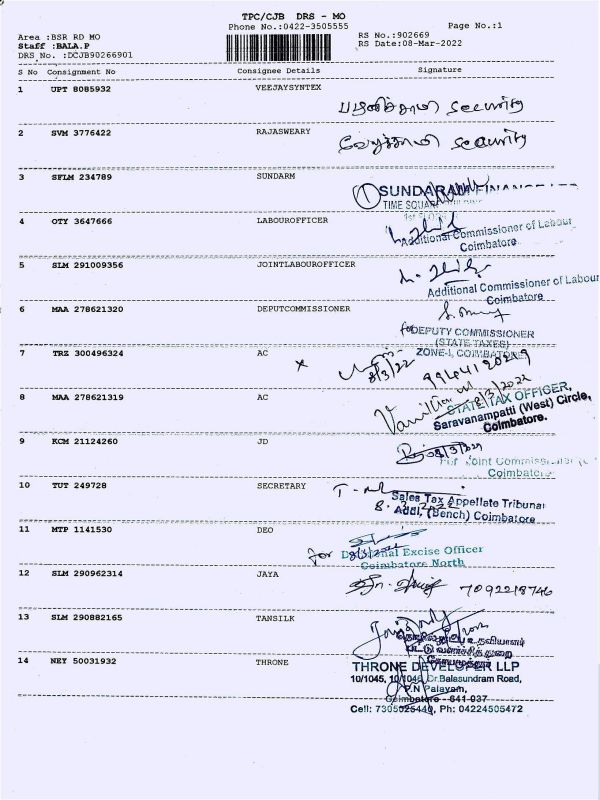 TPC/CJB DRS - MO
Phone No.:0422-3505555
Page No.:1
Area :BSR RD MO
RS No.:902669
Staff :BALA.P
RS Date:08-Mar-2022
DRS No. :DCJB90266901
S No Consignment No Consignee Details Signature
1 UPT 8085932 VEEJAYSYNTEX
பழனிச்சாமி security
2 SVM 3776422 RAJASWEARY
வேலுச்சாமி security
3 SFLM 234789 SUNDARM
SUNDARAM FINANCE
TIME SQUARE
4 OTY 3647666 LABOUROFFICER
Additional Commissioner of Labour
Coimbatore
5 SLM 291009356 JOINTLABOUROFFICER
Additional Commissioner of Labour
Coimbatore
6 MAA 278621320 DEPUTCOMMISSIONER
for DEPUTY COMMISSIONER
(STATE TAXES)
ZONE-I, COIMBATORE
7 TRZ 300496324 AC
x 8/3/22
8 MAA 278621319 AC
8/3/2022
STATE TAX OFFICER,
Saravanampatti (West) Circle,
Coimbatore.
9 KCM 21124260 JD
08/3/2022
For Joint Commissioner
Coimbatore
10 TUT 249728 SECRETARY
Sales Tax Appellate Tribunal
Addl. (Bench) Coimbatore
11 MTP 1141530 DEO
for Divisional Excise Officer
Coimbatore North
12 SLM 290962314 JAYA
7092218746
13 SLM 290882165 TANSILK
பட்டு வளர்ச்சித் துறை
கோயமுத்தூர்
14 NEY 50031932 THRONE
THRONE DEVELOPER LLP
10/1045, 10/1046, Dr.Balasundram Road,
P.N Palayam,
Coimbatore - 641-037
Cell: 7305025440, Ph: 04224505472